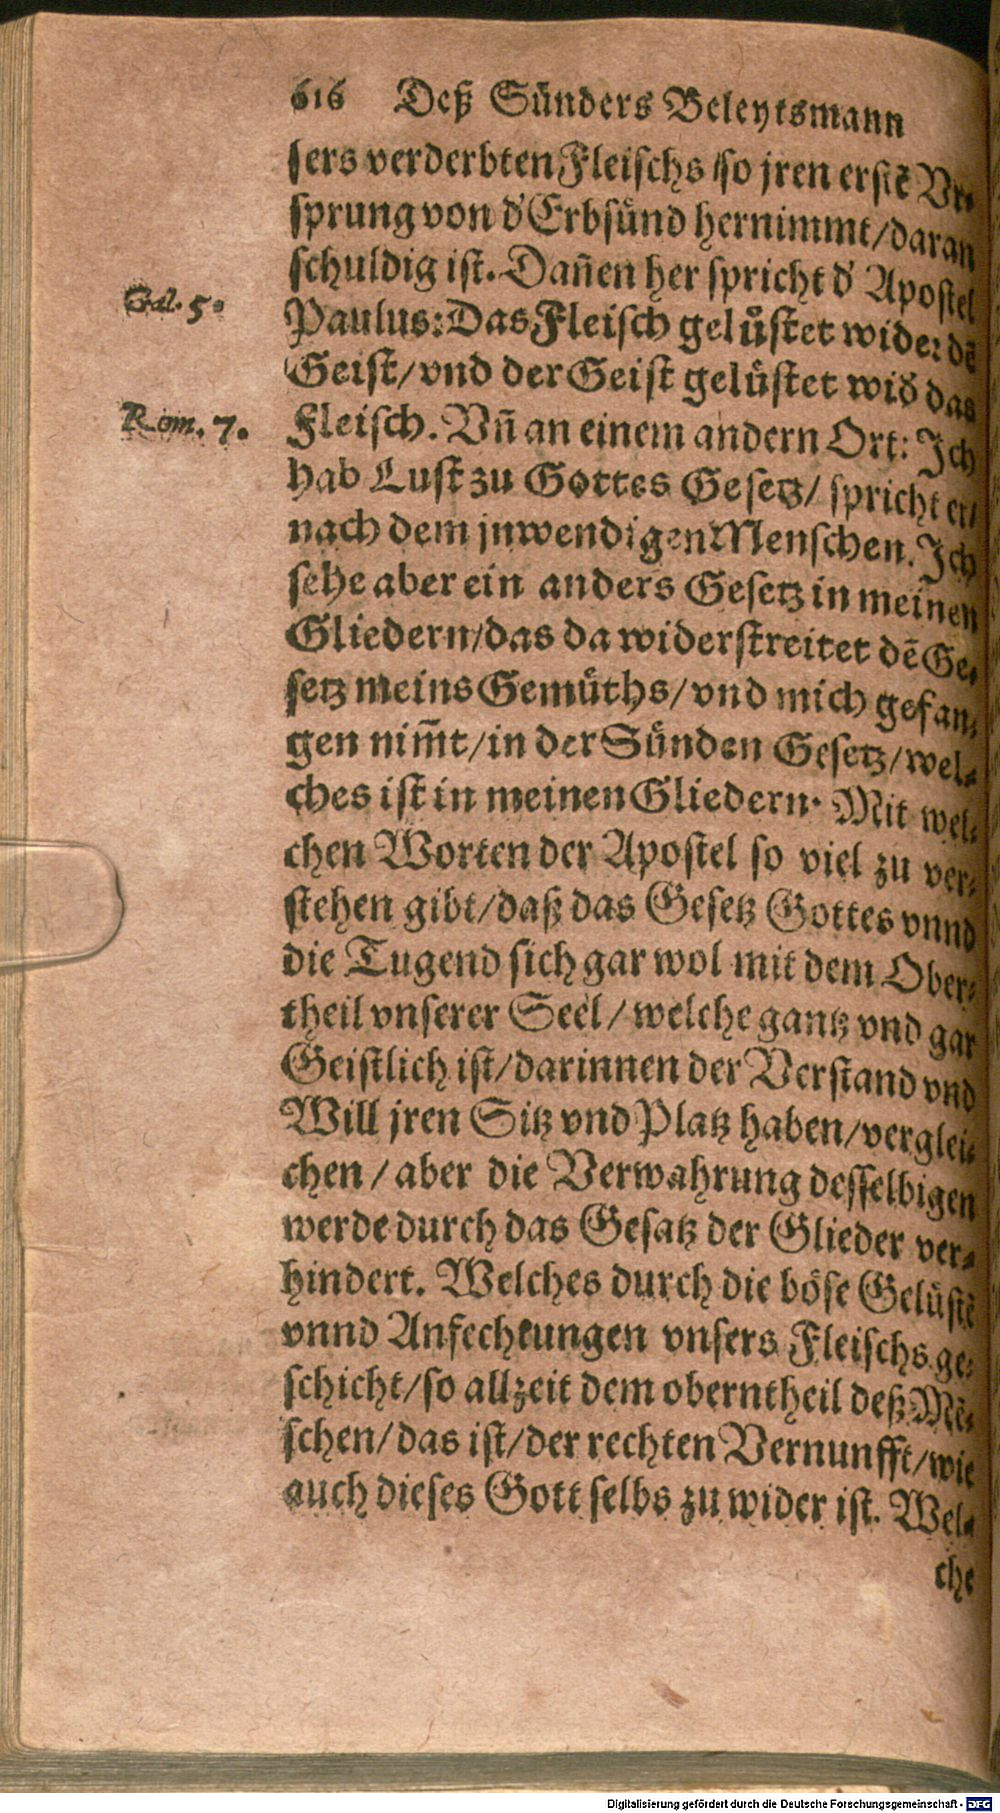 616 Deß Sünders Beleytsmann
sers verderbten Fleischs / so jren erstē Vr-
sprung von d' Erbsünd hernimmt / daran
schuldig ist. Dañen her spricht d' Apostel
Gal. 5.
Paulus: Das Fleisch gelüstet wider dē
Geist / vnd der Geist gelüstet wid' das
Rom. 7.
Fleisch. Vñ an einem andern Ort: Ich
hab Lust zu Gottes Gesetz / spricht er /
nach dem jnwendigen Menschen. Ich
sehe aber ein anders Gesetz in meinen
Gliedern / das da widerstreitet dē Ge-
setz meins Gemüths / vnd mich gefan-
gen nim̃t / in der Sünden Gesetz / wel-
ches ist in meinen Gliedern. Mit wel-
chen Worten der Apostel so viel zu ver-
stehen gibt / daß das Gesetz Gottes vnnd
die Tugend sich gar wol mit dem Ober-
theil vnserer Seel / welche gantz vnd gar
Geistlich ist / darinnen der Verstand vnd
Will jren Sitz vnd Platz haben / verglei-
chen / aber die Verwahrung desselbigen
werde durch das Gesatz der Glieder ver-
hindert. Welches durch die böse Gelüstē
vnnd Anfechtungen vnsers Fleischs ge-
schicht / so allzeit dem oberntheil deß Mē-
schen / das ist / der rechten Vernunfft / wie
auch dieses Gott selbs zu wider ist. Wel-
che
Digitalisierung gefördert durch die Deutsche Forschungsgemeinschaft - DFG